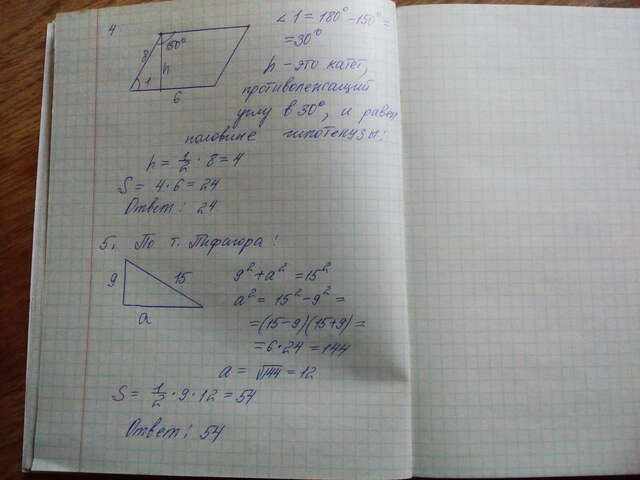 4
∠1 = 180° - 150° =
= 30°
150°
8
h
1
6
h - это катет,
противолежащий
углу в 30°, и равен
половине гипотенузы:
h = 1/2 · 8 = 4
S = 4 · 6 = 24
Ответ: 24
5. По т. Пифагора:
9
15
a
9² + a² = 15²
a² = 15² - 9² =
= (15-9)(15+9) =
= 6 · 24 = 144
a = √144 = 12
S = 1/2 · 9 · 12 = 54
Ответ: 54